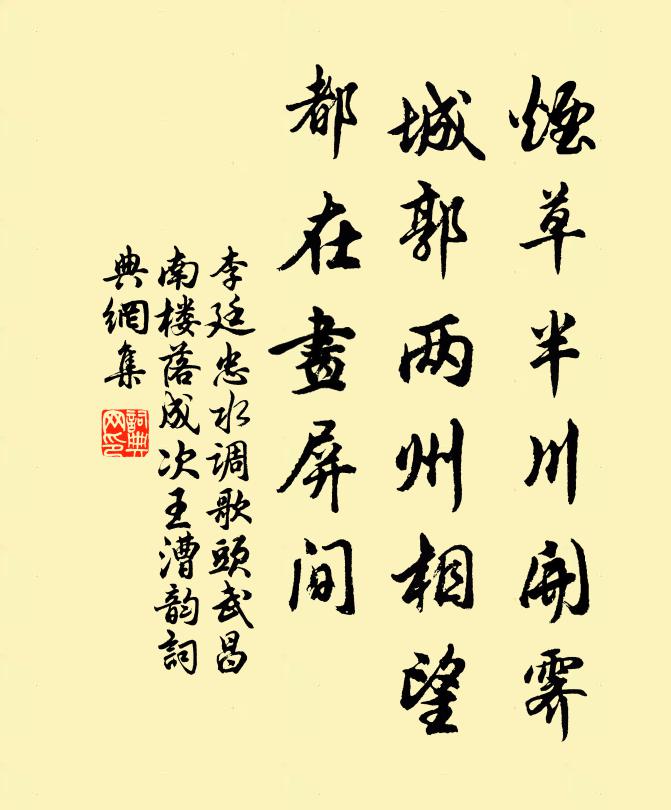 煙草半川開霽
城郭两州相望
都在畫屏間
李廷忠水调歌頭武昌
南楼落成次王漕韵詞
典網集
詞典网印